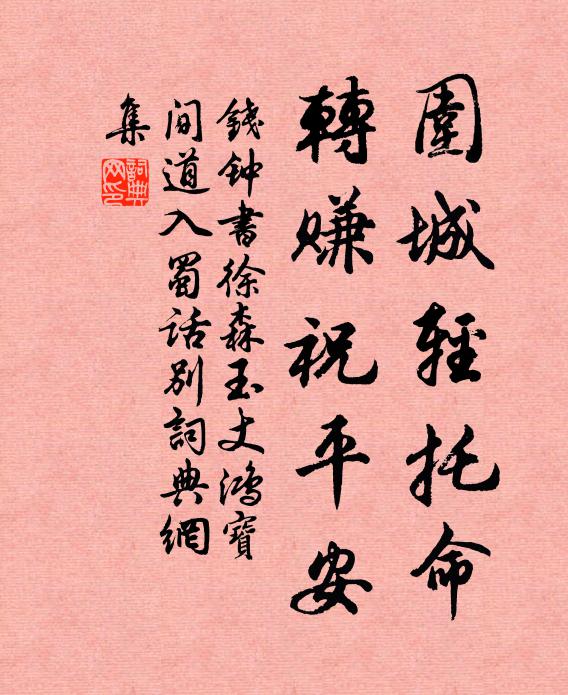 圍城輕托命
轉賺祝平安
錢钟書徐森玉丈鴻寶
间道入蜀話别詞典網
集
詞典
网印